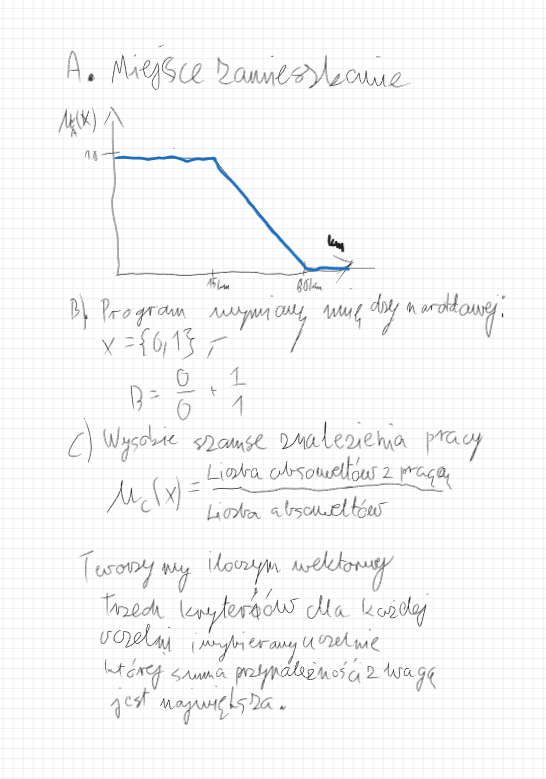 A. Miejsce zamieszkanie
μA(x)
1.0
km
15km 80km
B). Program wymiany między narodowej:
X = {0,1} ;
B = 0/0 + 1/1
C) Wysokie szanse znalezienia pracy
μc(x) = Liczba absolwentów z pracą / Liczba absolwentów
Tworzymy iloczyn wektorowy
trzech kryteriów dla każdej
uczelni i wybieramy uczelnie
której suma przynależności z wagą
jest największa.